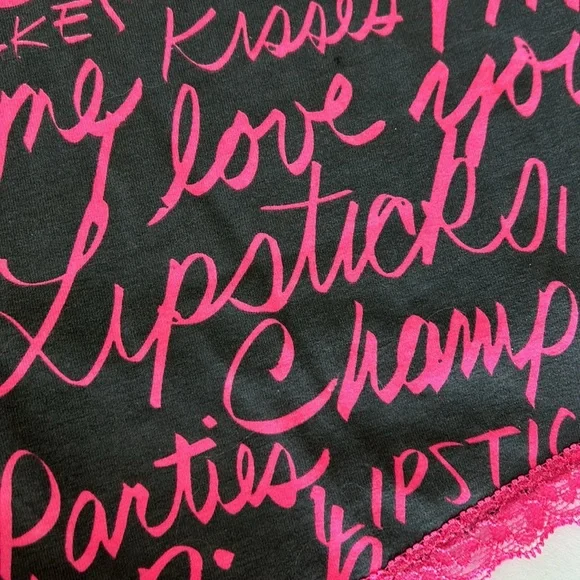 KE Kisses
me love you
Lipsticks
Champ
Parties LIPSTIC